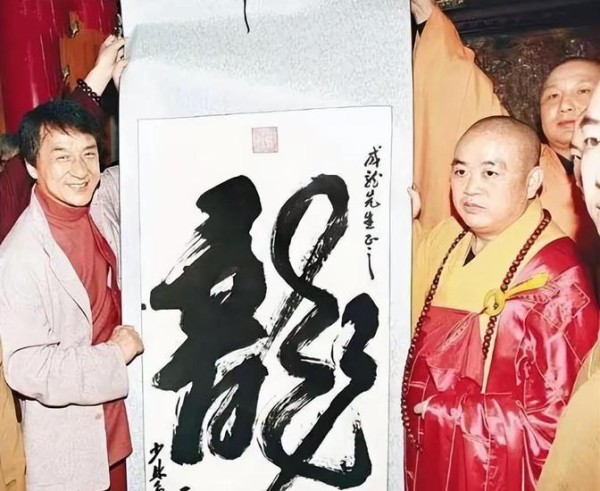 成龍先生正之
龍
少林